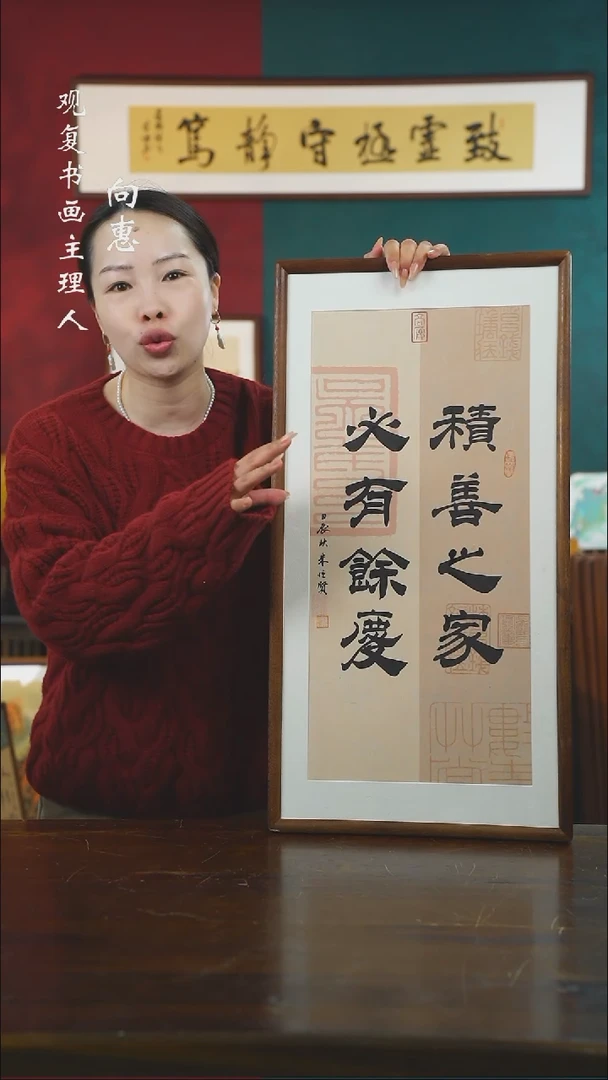 致虚極守静篤
观复书画主理人
向惠
積善之家
必有餘慶